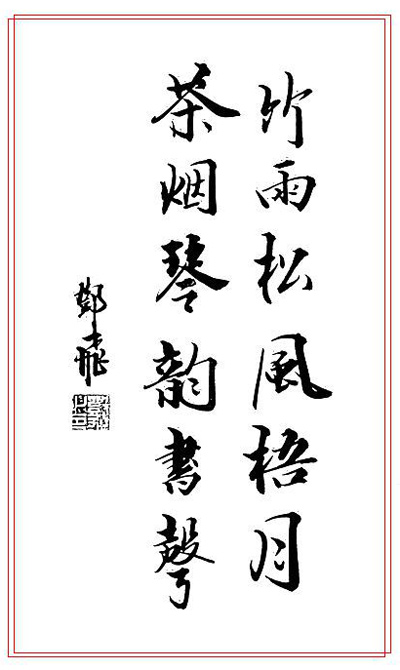 竹雨松風梧月
茶烟琴韵書聲
鄧飛